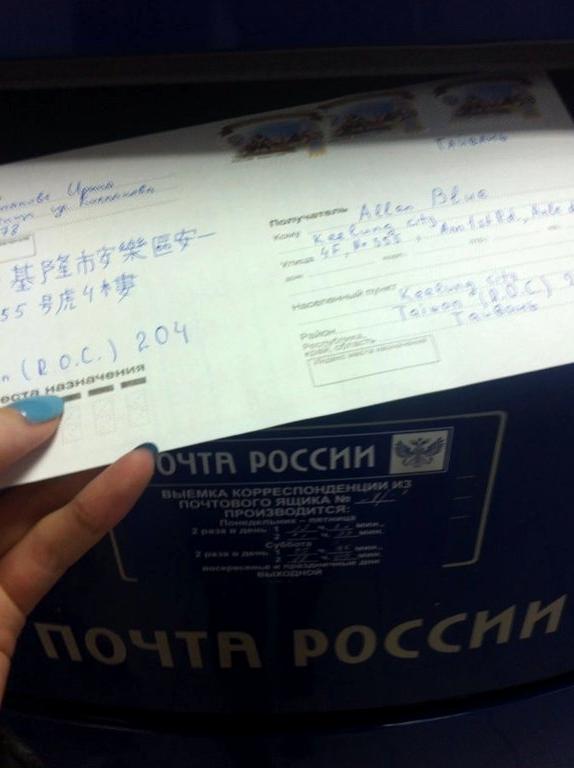 Ирина
ул.
78
基隆市安樂區安一
55 号虎 4 樓
(R.O.C.) 204
места назначения
Тайвань
Получатель Allan Blue
Кому Keelung city
Улица 4F, No 355, Ann 1st Rd.,
дом
Населенный пункт Keelung city
Taiwan (R.O.C.) 2
Тайвань
Район
Республика,
край, область
Индекс места назначения
ПОЧТА РОССИИ
ВЫЕМКА КОРРЕСПОНДЕНЦИИ ИЗ
ПОЧТОВОГО ЯЩИКА №
ПРОИЗВОДИТСЯ:
Понедельник – пятница
2 раза в день 1 ч. мин.,
2 ч. мин.
Суббота
2 раза в день 1 ч. мин.,
2 ч. мин.
воскресенье и праздничные дни
ВЫХОДНОЙ
ПОЧТА РОССИИ